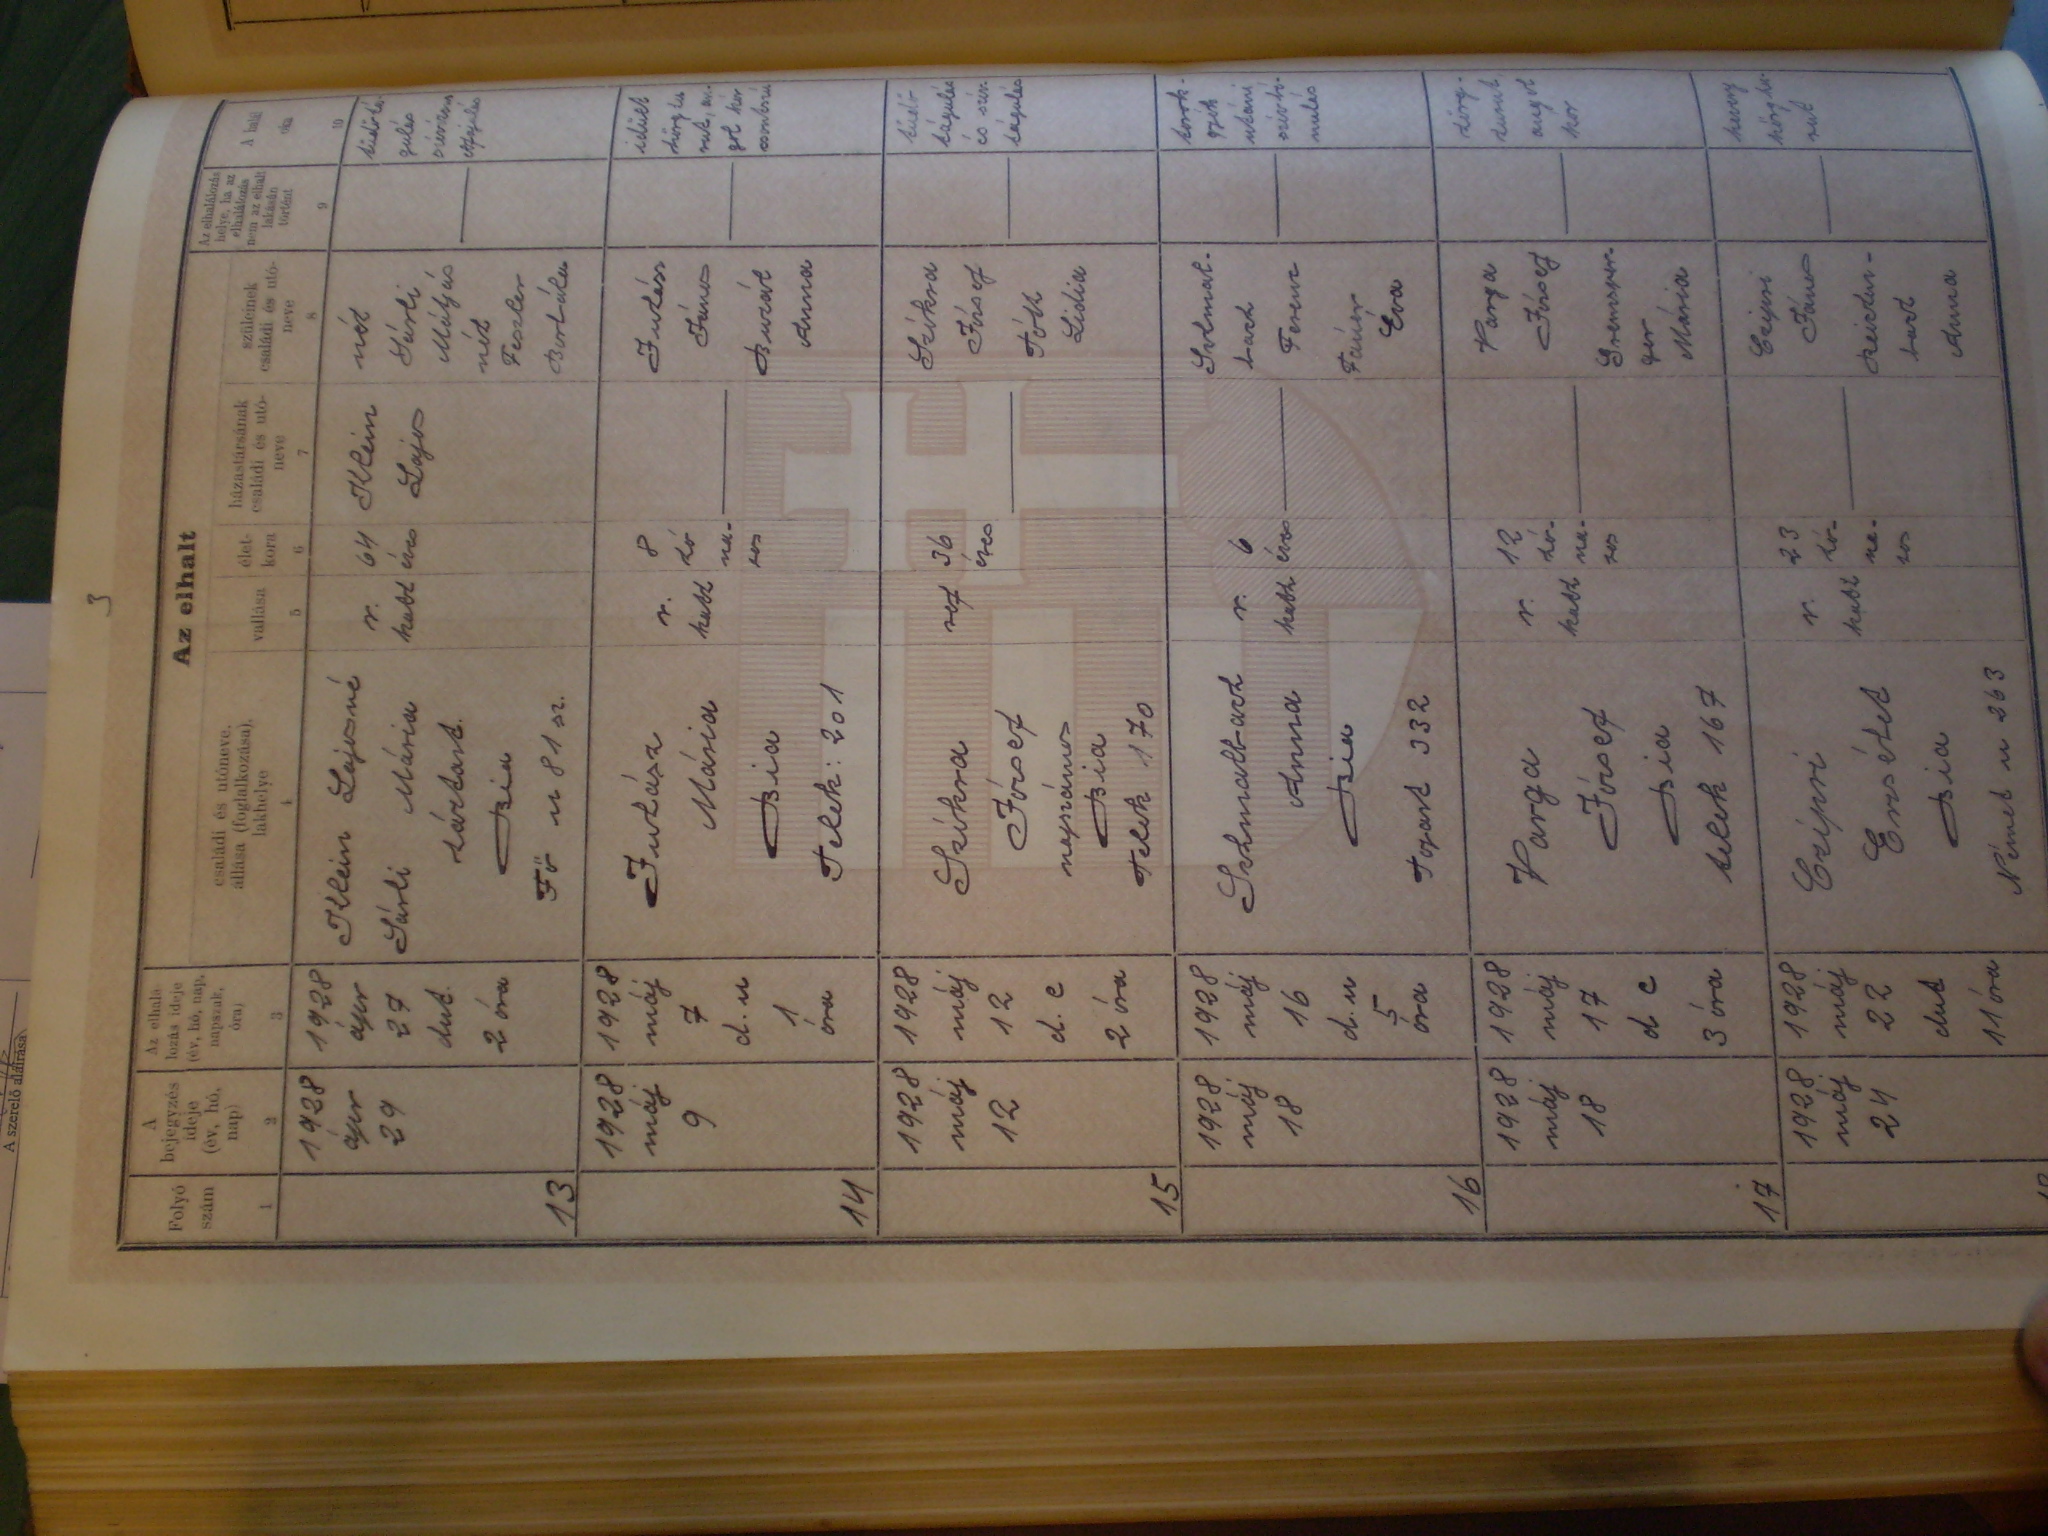 3
Az elhalt
Folyó
szám
A
bejegyzés
ideje
(év, hó,
nap)
Az elhalá-
lozás ideje
(év, hó, nap,
napszak,
óra)
családi és utóneve,
állása (foglalkozása),
lakhelye
vallása
élet-
kora
házastársának
családi és utó-
neve
szüleinek
családi és utó-
neve
Az elhalálozás
helye, ha az
elhalálozás
nem az elhalt
lakásán
történt
A halál
oka
1
2
3
4
5
6
7
8
9
10
13
1928
ápr
29
1928
ápr
27
dut.
2 óra
Klein Lajosné
Sárli Mária
háztart.
Bia
Fő u 81 sz.
r.
kath
64
éves
Klein
Lajos
néh
Sárli
Mátyás
néh
Feszler
Borbála
14
1928
máj
9
1928
máj
7
d. u
1
óra
Juhász
Mária
Bia
Telek: 201
r.
kath
8
hó
na-
pos
Juhász
János
Buzát
Anna
15
1928
máj
12
1928
máj
12
d. e
2 óra
Szikra
József
napszámos
Bia
Telek 170
ref
36
éves
Szikra
József
Tóth
Lidia
tüdő
tágulás
és szív
tágulás
16
1928
máj
18
1928
máj
16
d. u
5
óra
Schmalbach
Anna
Bia
Topart 332
r.
kath
6
éves
Schmal-
bach
Ferenc
Éva
torok-
gyík
utáni
szívbé-
nulás
17
1928
máj
18
1928
máj
17
d e
3 óra
Varga
József
Bia
telek 167
r.
kath
12
hó-
na-
pos
Varga
József
Mária
hörg-
hurut,
angol
kor
1928
máj
24
1928
máj
22
dut
11 óra
Czipri
Erzsébet
Bia
Német u 263
r.
kath
23
hó-
na-
pos
Czipri
János
Anna
A szerelő aláírása